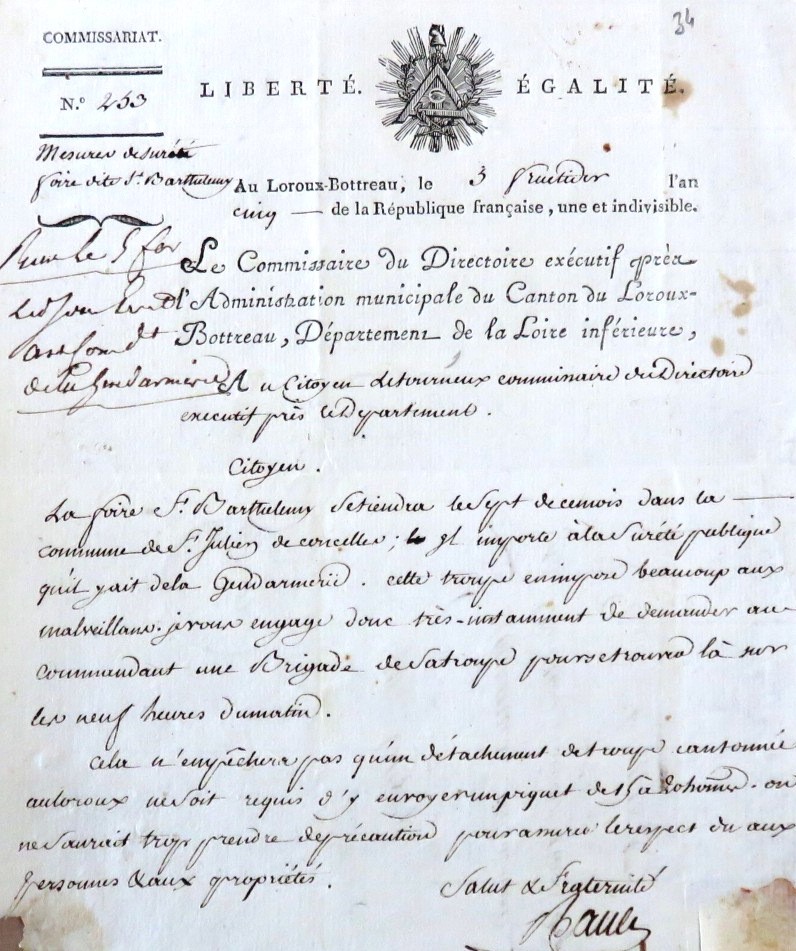 34
COMMISSARIAT.
N.° 253
LIBERTÉ. ÉGALITÉ.
Mesures de sureté
foire dite St. Barthelemy
Au Loroux-Bottreau, le 3 fructidor l'an
cinq — de la République française, une et indivisible.
le 5
de la Gendarmerie
Le Commissaire du Directoire exécutif près
l'Administration municipale du Canton du Loroux-
Bottreau, Département de la Loire inférieure,
Au Citoyen Letourneux commissaire du Directoire
executif près le Département.
Citoyen.
La foire St. Barthelemy se tiendra le sept de ce mois dans la —
commune de St. Julien de concelles; il importe à la sureté publique
qu'il y ait de la Gendarmerie. cette troupe en impose beaucoup aux
malveillans. je vous engage donc très-instamment de demander au
commandant une Brigade de sa troupe pour se trouver là sur
les neuf heures du matin.
Cela n'empêchera pas qu'un détachement de troupe cantonnée
au loroux ne soit requis d'y envoyer un piquet de 15 à 20 hommes. on
ne saurait trop prendre de précaution pour assurer le respect du aux
personnes & aux propriétés.
Salut & Fraternité